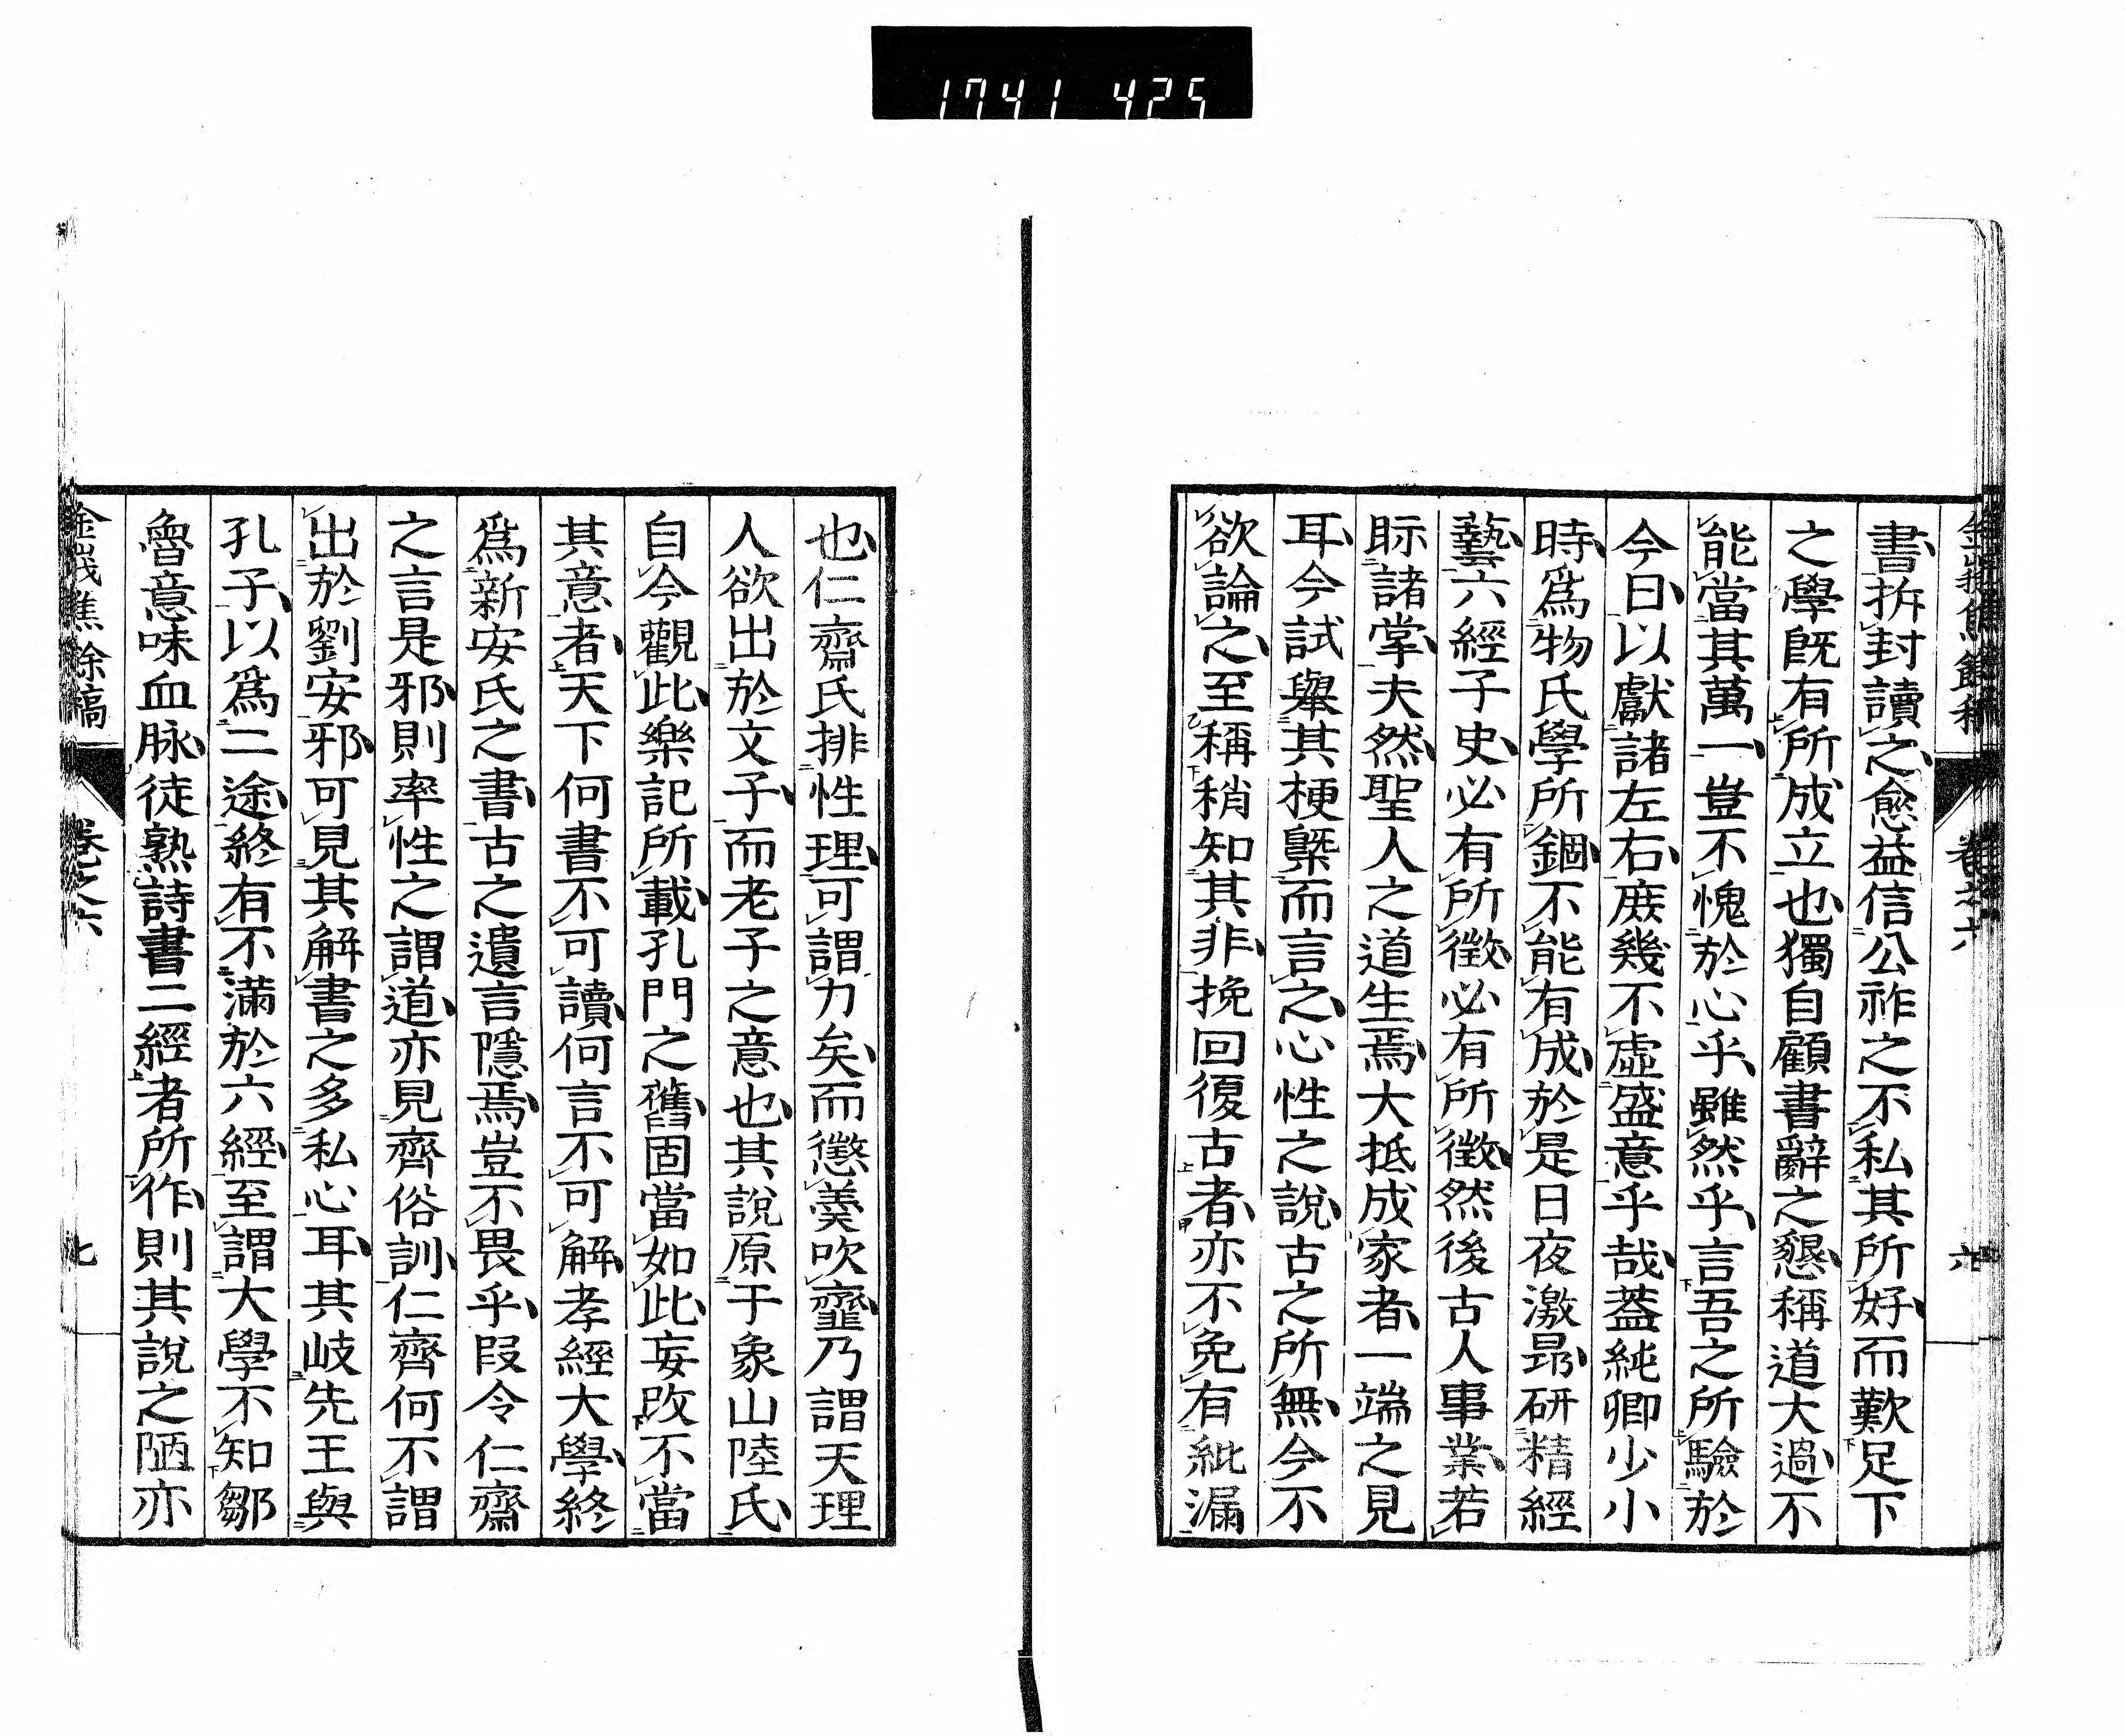 1741 425
書拆封讀之愈益信公祚之不私其所好而歎足下
之學既有所成立也獨自顧書辭之懇稱道大過不
能當其萬一豈不愧於心乎雖然乎言吾之所驗於
今日以獻諸左右庶幾不虛盛意乎哉蓋純卿少小
時爲物氏學所錮不能有成於是日夜激昂研精經
藝六經子史必有所徵必有所徵然後古人事業若
眎諸掌夫然聖人之道生焉大抵成家者一端之見
耳今試舉其梗槩而言之心性之說古之所無今不
欲論之至稱稍知其非挽回復古者亦不免有紕漏
也仁齋氏排性理可謂力矣而懲羹吹韲乃謂天理
人欲出於文子而老子之意也其說原于象山陸氏
自今觀此樂記所載孔門之舊固當如此妄改不當
其意者天下何書不可讀何言不可解孝經大學終
爲新安氏之書古之遺言隱焉豈不畏乎叚令仁齋
之言是邪則率性之謂道亦見齊俗訓仁齊何不謂
出於劉安邪可見其解書之多私心耳其岐先王與
孔子以爲二途終有不滿於六經至謂大學不知鄒
魯意味血脉徒熟詩書二經者所作則其說之陋亦
金峩焦餘稿
卷之六
七